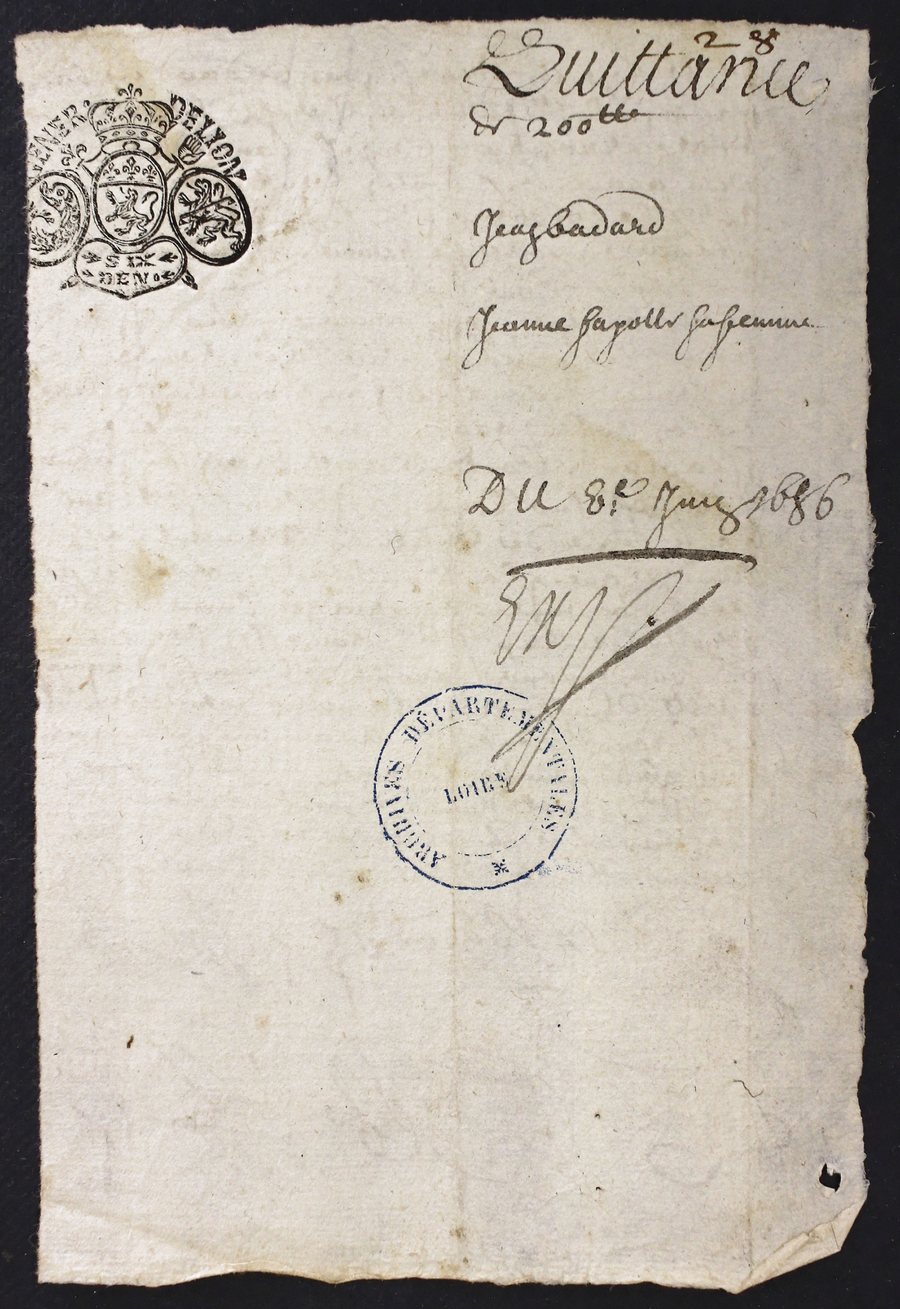 28
Quittance
de 200tt
GENER. DE LYON
SIX
DEN.
Jean badard
Jeanne chapolle sa femme
Du 8.e Juin 1686
ARCHIVES DÉPARTEMENTALES
LOIRE